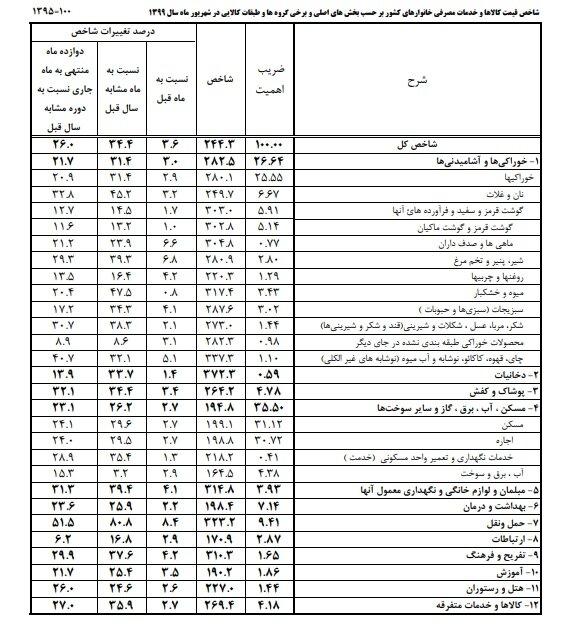 شاخص قیمت کالاها و خدمات مصرفی خانوارهای کشور بر حسب بخش های اصلی و برخی گروه ها و طبقات کالایی در شهریور ماه سال ۱۳۹۹
۱۳۹۵=۱۰۰
شرح ضریب اهمیت شاخص درصد تغییرات شاخص
نسبت به ماه قبل نسبت به ماه مشابه سال قبل دوازده ماه منتهی به ماه جاری نسبت به دوره مشابه سال قبل
شاخص کل ۱۰۰.۰۰ ۲۴۴.۳ ۳.۶ ۳۴.۴ ۲۶.۰
۱- خوراکی‌ها و آشامیدنی‌ها ۲۶.۶۴ ۲۸۲.۵ ۳.۰ ۳۱.۴ ۲۱.۷
خوراکیها ۲۵.۵۵ ۲۸۰.۱ ۲.۹ ۳۱.۴ ۲۰.۹
نان و غلات ۶.۶۷ ۲۴۹.۷ ۳.۲ ۴۵.۲ ۳۲.۸
گوشت قرمز و سفید و فرآورده های آنها ۵.۹۱ ۳۰۳.۰ ۱.۷ ۱۴.۵ ۱۲.۷
گوشت قرمز و گوشت ماکیان ۵.۱۴ ۳۰۲.۸ ۱.۰ ۱۳.۲ ۱۱.۶
ماهی ها و صدف داران ۰.۷۷ ۳۰۴.۸ ۶.۶ ۲۳.۹ ۲۱.۲
شیر، پنیر و تخم مرغ ۲.۸۰ ۲۸۰.۹ ۶.۸ ۳۹.۳ ۲۹.۳
روغنها و چربیها ۱.۲۹ ۲۲۰.۳ ۴.۲ ۱۶.۴ ۱۳.۵
میوه و خشکبار ۳.۴۳ ۳۱۷.۴ ۰.۸ ۴۷.۵ ۲۰.۴
سبزیجات (سبزی‌ها و حبوبات ) ۳.۰۲ ۲۸۷.۶ ۴.۱ ۳۴.۳ ۱۷.۲
شکر، مربا، عسل ، شکلات و شیرینی(قند و شکر و شیرینی‌ها) ۱.۴۴ ۲۷۳.۰ ۲.۱ ۳۸.۳ ۳۰.۷
محصولات خوراکی طبقه بندی نشده در جای دیگر ۰.۹۸ ۲۸۲.۳ ۳.۱ ۸.۶ ۸.۹
چای، قهوه، کاکائو، نوشابه و آب میوه (نوشابه های غیر الکلی) ۱.۱۰ ۳۳۷.۳ ۵.۱ ۳۲.۱ ۴۰.۷
۲- دخانیات ۰.۵۹ ۳۷۲.۳ ۱.۴ ۳۳.۷ ۱۳.۹
۳- پوشاک و کفش ۴.۷۸ ۲۶۴.۲ ۳.۴ ۳۴.۴ ۳۲.۱
۴- مسکن ، آب ، برق ، گاز و سایر سوخت‌ها ۳۵.۵۰ ۱۹۴.۸ ۲.۷ ۲۶.۲ ۲۳.۱
مسکن ۳۱.۱۲ ۱۹۹.۱ ۲.۷ ۲۹.۶ ۲۴.۱
اجاره ۳۰.۷۲ ۱۹۸.۸ ۲.۷ ۲۹.۵ ۲۴.۰
خدمات نگهداری و تعمیر واحد مسکونی (خدمت ) ۰.۴۱ ۲۱۸.۲ ۱.۳ ۳۵.۴ ۲۸.۹
آب ، برق و سوخت ۴.۳۸ ۱۶۴.۵ ۲.۹ ۳.۲ ۱۵.۳
۵- مبلمان و لوازم خانگی و نگهداری معمول آنها ۳.۹۳ ۳۱۴.۸ ۴.۱ ۳۹.۴ ۳۱.۳
۶- بهداشت و درمان ۷.۱۴ ۱۹۸.۴ ۲.۲ ۲۵.۹ ۲۳.۶
۷- حمل ونقل ۹.۴۱ ۳۲۳.۲ ۸.۴ ۸۰.۸ ۵۱.۵
۸- ارتباطات ۲.۸۷ ۱۷۰.۹ ۲.۹ ۱۶.۸ ۶.۲
۹- تفریح و فرهنگ ۱.۶۵ ۳۱۰.۳ ۴.۲ ۳۷.۶ ۲۹.۹
۱۰- آموزش ۱.۸۶ ۱۹۰.۲ ۳.۵ ۲۵.۴ ۲۱.۷
۱۱- هتل و رستوران ۱.۴۴ ۲۲۷.۰ ۲.۶ ۲۴.۶ ۲۶.۰
۱۲- کالاها و خدمات متفرقه ۴.۱۸ ۲۶۹.۴ ۲.۷ ۳۵.۹ ۲۷.۰